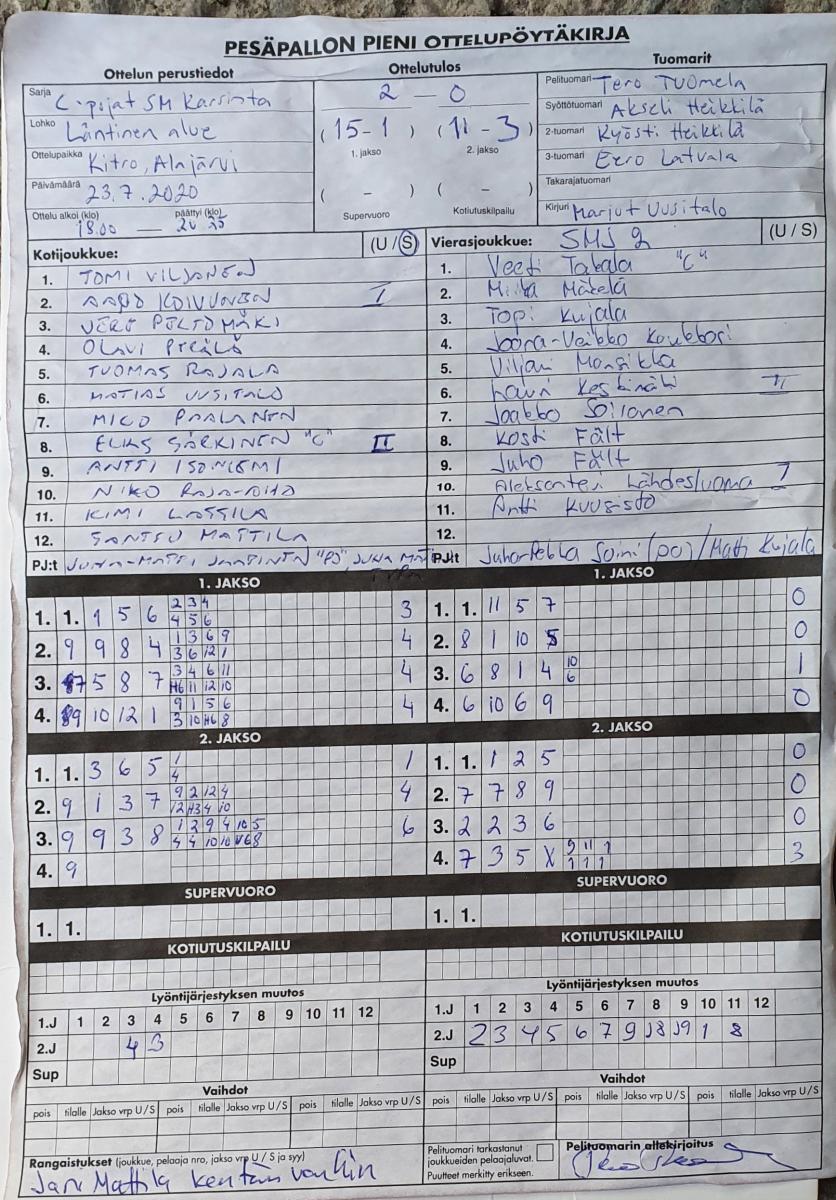 PESÄPALLON PIENI OTTELUPÖYTÄKIRJA
Ottelun perustiedot
Ottelutulos
Tuomarit
Sarja C-pojat SM Karsinta
Lohko Läntinen alue
Ottelupaikka Kitro, Alajärvi
Päivämäärä 23.7.2020
Ottelu alkoi (klo) päättyi (klo)
18.00 —
2 – 0
(15-1) (11-3)
1. jakso 2. jakso
( – ) ( – )
Supervuoro Kotiutuskilpailu
Pelituomari Tero Tuomela
Syöttötuomari Akseli Heikkilä
2-tuomari Kyösti Heikkilä
3-tuomari Eero Latvala
Takarajatuomari
Kirjuri Marjut Uusitalo
Kotijoukkue: (U / S)
1. TOMI VILJANEN
2. AAPO KOIVUNEN I
3. VERE PELTOMÄKI
4. OLAVI
5. TUOMAS RAJALA
6. MATIAS UUSITALO
7. MICO PAALANEN
8. ELIAS SÄRKINEN "C" II
9. ANTTI ISONIEMI
10. NIKO RAJA-AHO
11. KIMI LASSILA
12. SANTTU MATTILA
PJ:t JUHA-MATTI "PJ", JUHA
Vierasjoukkue: SMJ 2 (U / S)
1. Veeti Takala "C"
2. Miika Mäkelä
3. Topi Kujala
4. Joona-Veikko Koukkari
5. Viljami Mansikka
6. Lauri II
7. Jaakko Soilonen
8. Kosti Fält
9. Juho Fält
10. Aleksanteri Lähdesluoma I
11. Antti Kuusisto
12.
PJ:t Juha-Pekka Soini (PJ) / Matti Kujala
1. JAKSO
1. 1. 1 5 6 2 3 4 3
4 5 6
2. 9 9 8 4 1 3 6 9 4
3 6 12 1
3. 5 8 7 3 4 6 11 4
H6 11 12 10
4. 9 10 12 1 9 1 5 6 4
3 10 H6 8
2. JAKSO
1. 1. 3 6 5 1 1
4
2. 9 1 3 7 9 2 12 4 4
12 H3 4 10
3. 9 9 3 8 1 2 9 4 10 5 6
4 4 10 10 V6 8
4. 9
SUPERVUORO
1. 1.
KOTIUTUSKILPAILU
1. JAKSO
1. 1. 11 5 7 0
2. 8 1 10 5 0
3. 6 8 1 4 10 1
6
4. 6 10 6 9 0
2. JAKSO
1. 1. 1 2 5 0
2. 7 7 8 9 0
3. 2 2 3 6 0
4. 7 3 5 X 9 11 1 3
1 1 1
SUPERVUORO
1. 1.
KOTIUTUSKILPAILU
Lyöntijärjestyksen muutos
1.J 1 2 3 4 5 6 7 8 9 10 11 12
2.J 4 3
Sup
Vaihdot
pois tilalle Jakso vrp U / S pois tilalle Jakso vrp U / S pois tilalle Jakso vrp U / S
Lyöntijärjestyksen muutos
1.J 1 2 3 4 5 6 7 8 9 10 11 12
2.J 2 3 4 5 6 7 9 J8 J9 1 8
Sup
Vaihdot
pois tilalle Jakso vrp U / S pois tilalle Jakso vrp U / S pois tilalle Jakso vrp U / S
Rangaistukset (joukkue, pelaaja nro, jakso vrp U / S ja syy)
Jari Mattila kentän vanhin
Pelituomari tarkastanut
joukkueiden pelaajaluvat.
Puutteet merkitty erikseen.
Pelituomarin allekirjoitus